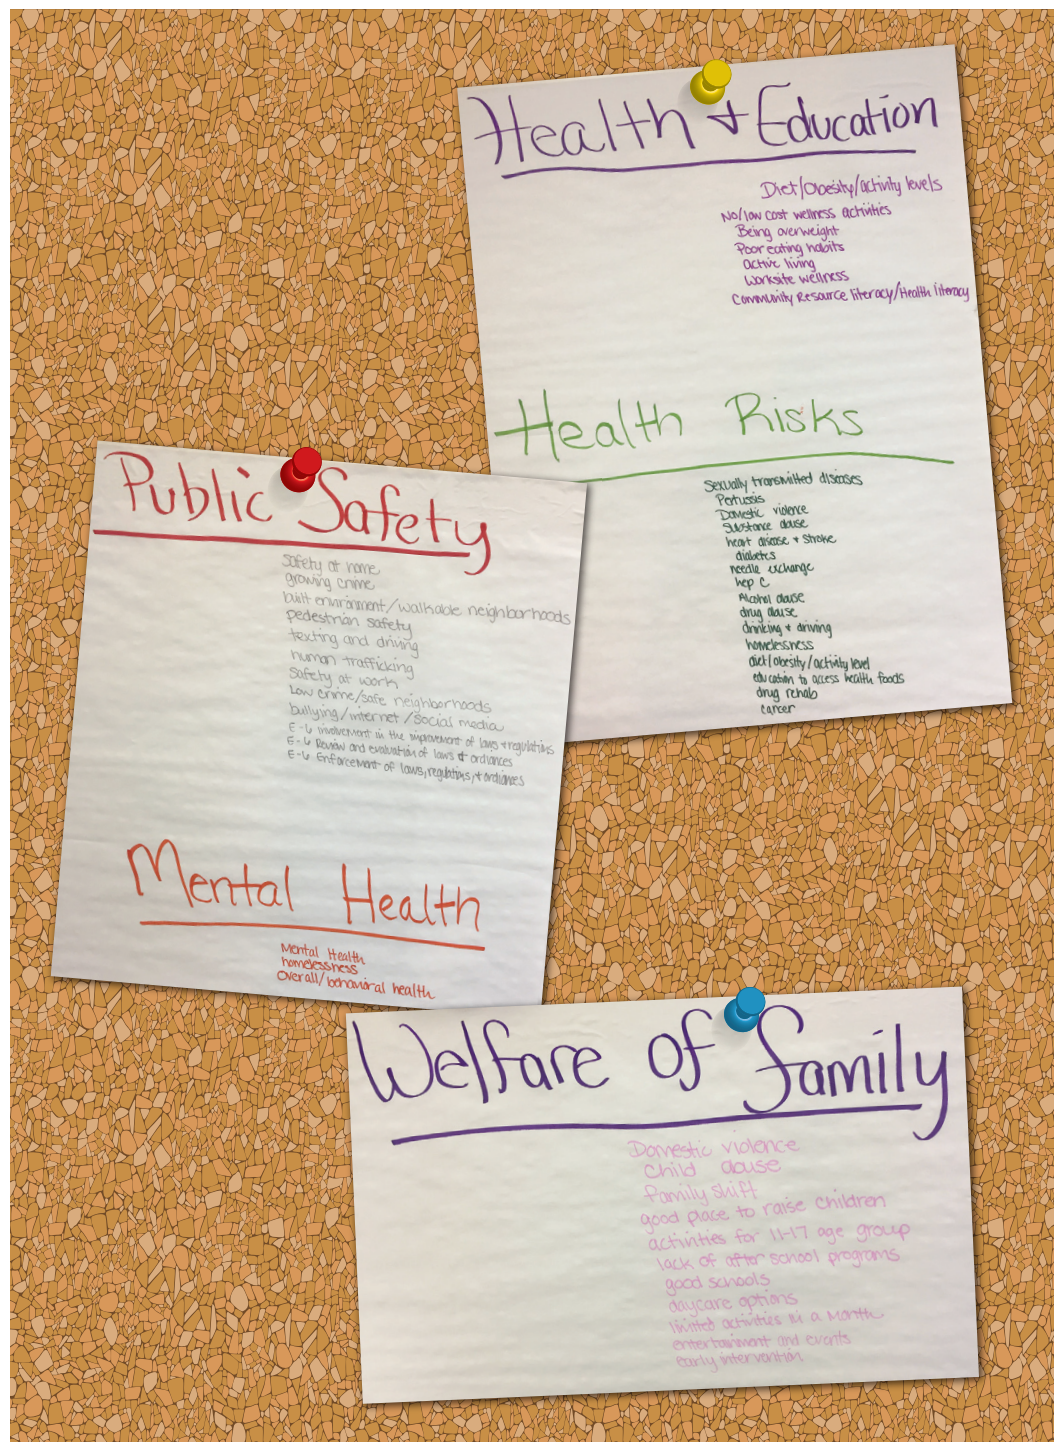 Health & Education
Diet/Obesity/activity levels
No/low cost wellness activities
Being overweight
Poor eating habits
active living
Worksite wellness
Community Resource literacy/Health literacy
Health Risks
Sexually transmitted diseases
Pertussis
Domestic violence
Substance abuse
heart disease & stroke
diabetes
needle exchange
hep C
Alcohol abuse
drug abuse
drinking & driving
homelessness
diet/obesity/activity level
education to access health foods
drug rehab
cancer
Public Safety
Safety at home
growing crime
built environment/walkable neighborhoods
pedestrian safety
texting and driving
human trafficking
Safety at work
Low crime/safe neighborhoods
bullying/internet/social media
E-6 involvement in the improvement of laws & regulations
E-6 Review and evaluation of laws & ordiances
E-6 Enforcement of laws, regulations, & ordiances
Mental Health
Mental Health
homelessness
Overall/behavioral health
Welfare of family
Domestic violence
Child abuse
Family shift
good place to raise children
activities for 11-17 age group
lack of after school programs
good schools
daycare options
limited activities in a Month
entertainment and events
early intervention